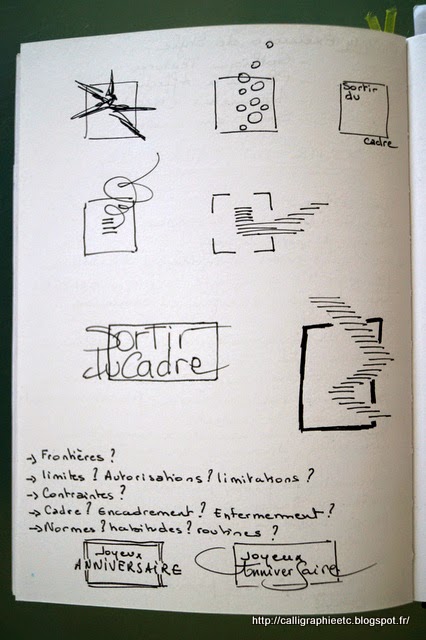 Sortir
du
cadre
Sortir
du Cadre
→ Frontières ?
→ limites ? Autorisations ? limitations ?
→ Contraintes ?
→ Cadre ? Encadrement ? Enfermement ?
→ Normes ? habitudes ? routines ?
Joyeux
ANNIVERSAIRE
Joyeux
Anniversaire
http://calligraphieetc.blogspot.fr/